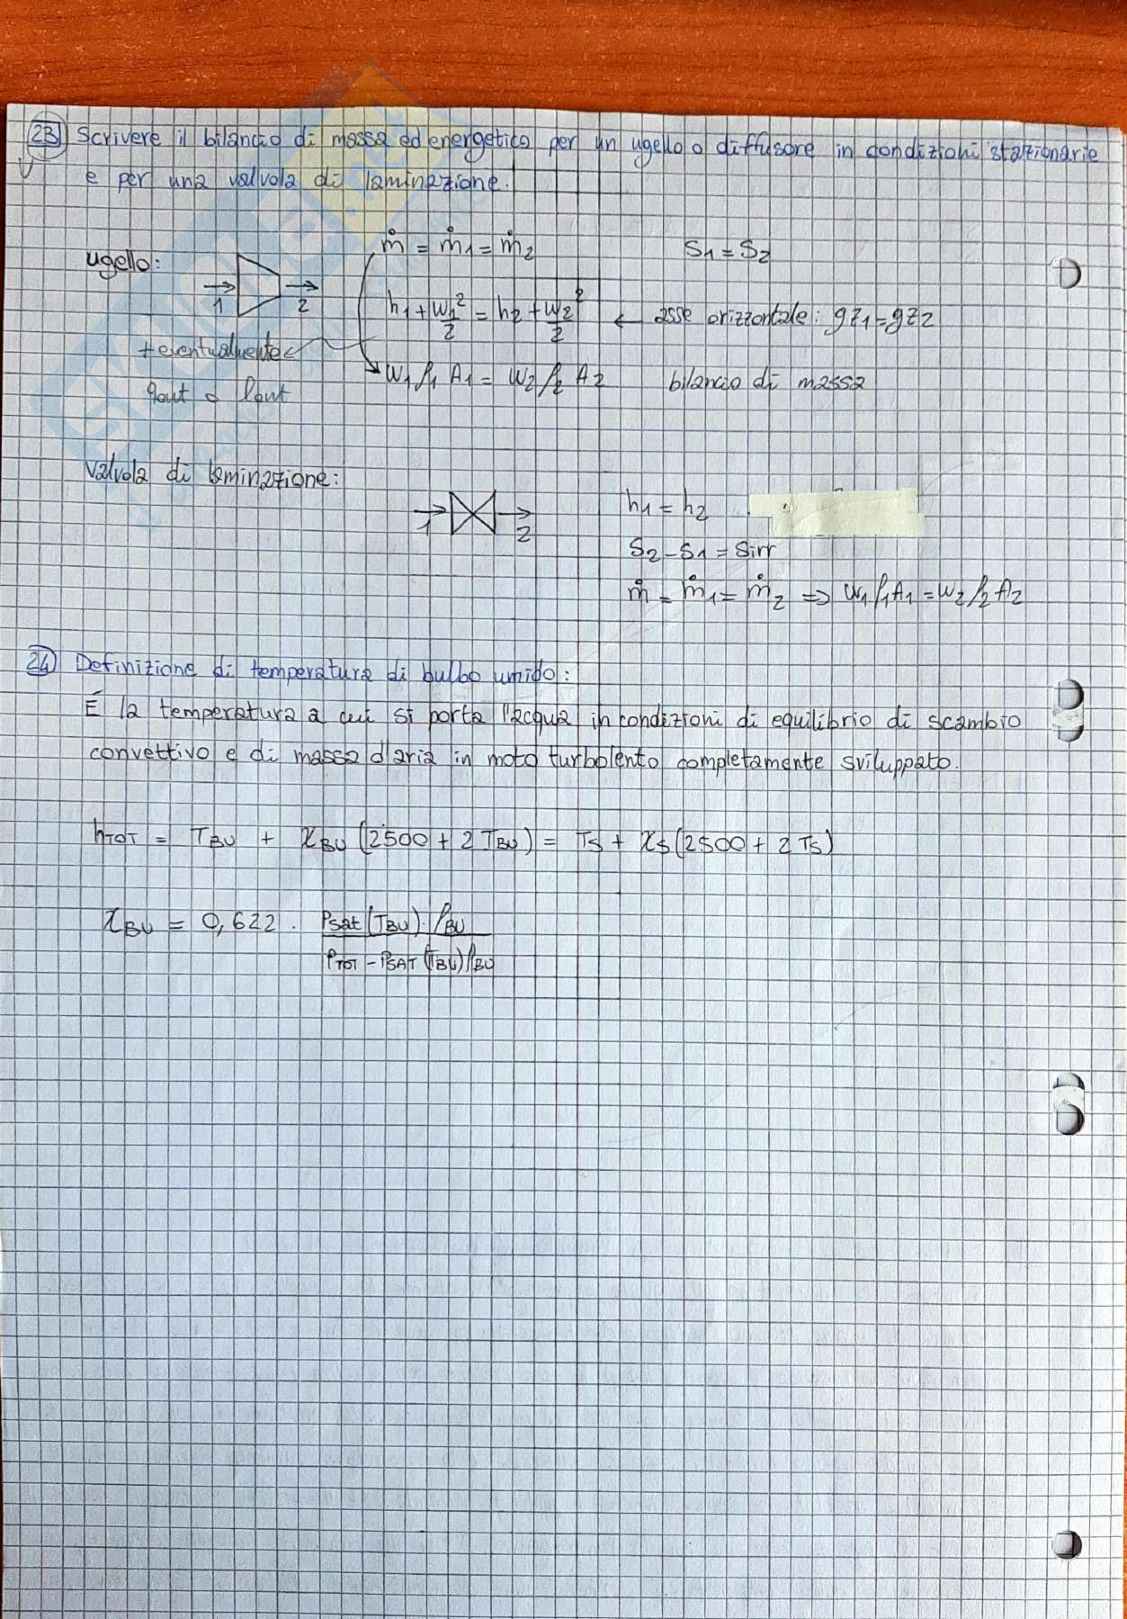 23) Scrivere il bilancio di massa ed energetico per un ugello o diffusore in condizioni stazionarie
e per una valvola di laminazione.
ugello:
1 2
ṁ = ṁ1 = ṁ2
S1 = S2
h1 + w1²/2 = h2 + w2²/2 ← asse orizzontale: gz1 = gz2
+ eventualmente
qout o lout
w1 ρ1 A1 = w2 ρ2 A2 bilancio di massa
Valvola di laminazione:
1 2
h1 = h2
S2 - S1 = Sirr
ṁ = ṁ1 = ṁ2 ⇒ w1 ρ1 A1 = w2 ρ2 A2
24) Definizione di temperatura di bulbo umido:
É la temperatura a cui si porta l'acqua in condizioni di equilibrio di scambio
convettivo e di massa d'aria in moto turbolento completamente sviluppato.
hTOT = TBU + XBU (2500 + 2 TBU) = TS + XS (2500 + 2 TS)
XBU = 0,622 · Psat (TBU) · ρBU / PTOT - PSAT (TBU) ρBU